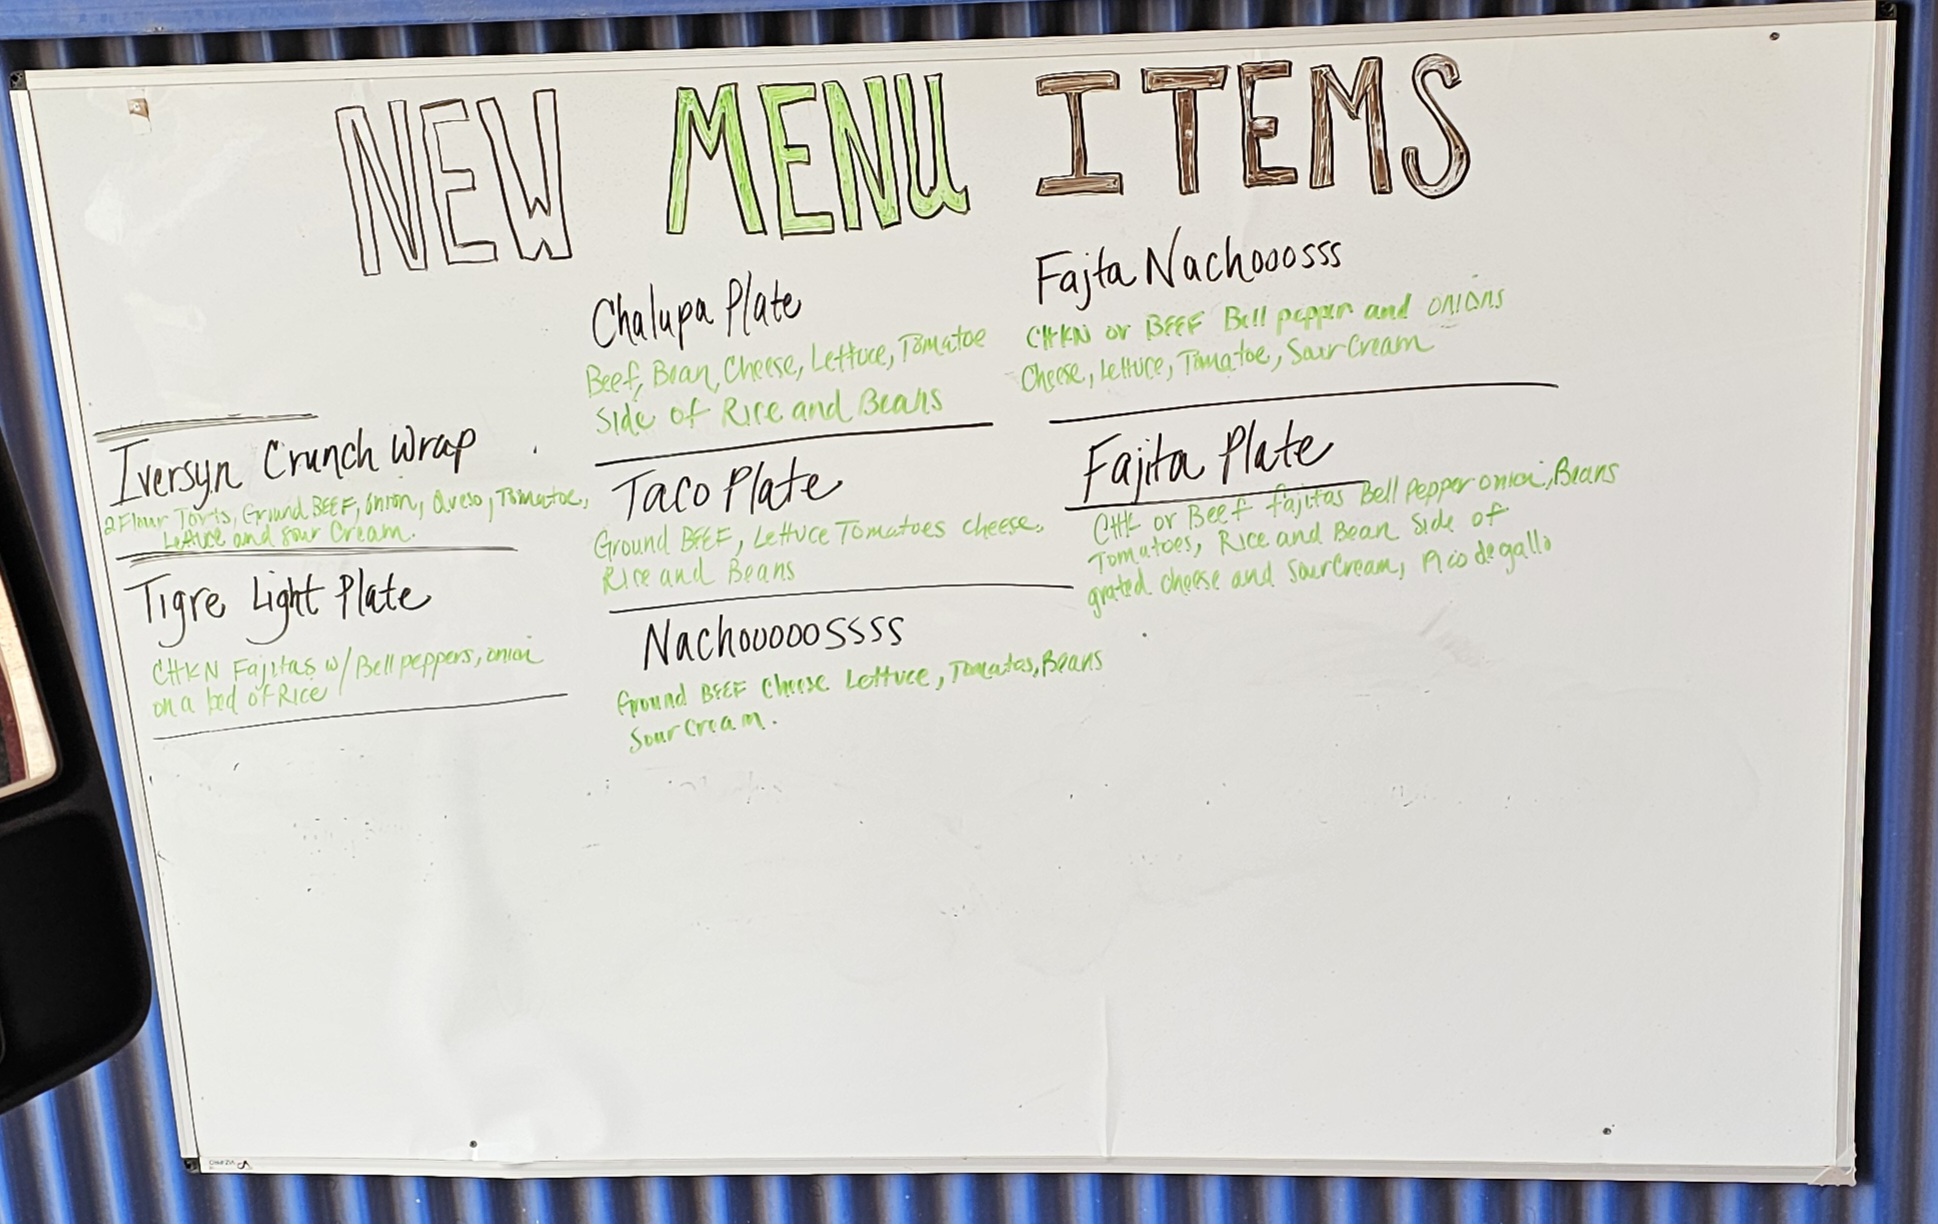 NEW MENU ITEMS
Iversyn Crunch Wrap
2 Flour Torts, Ground BEEF, Onion, Queso, Tomatoe,
Lettuce and Sour Cream.
Tigre Light Plate
CHKN Fajitas w/ Bell peppers, onion
on a bed of Rice
Chalupa Plate
Beef, Bean, Cheese, Lettuce, Tomatoe
Side of Rice and Beans
Taco Plate
Ground BEEF, Lettuce Tomatoes cheese,
Rice and Beans
Nachooooossss
Ground BEEF Cheese Lettuce, Tomatos, Beans
Sour Cream.
Fajta Nachooosss
CHKN or BEEF Bell pepper and onions
Cheese, Lettuce, Tomatoe, Sour Cream
Fajita Plate
CHK or Beef fajitas Bell Pepper onion, Beans
Tomatoes, Rice and Bean Side of
grated cheese and Sour Cream, Pico de gallo